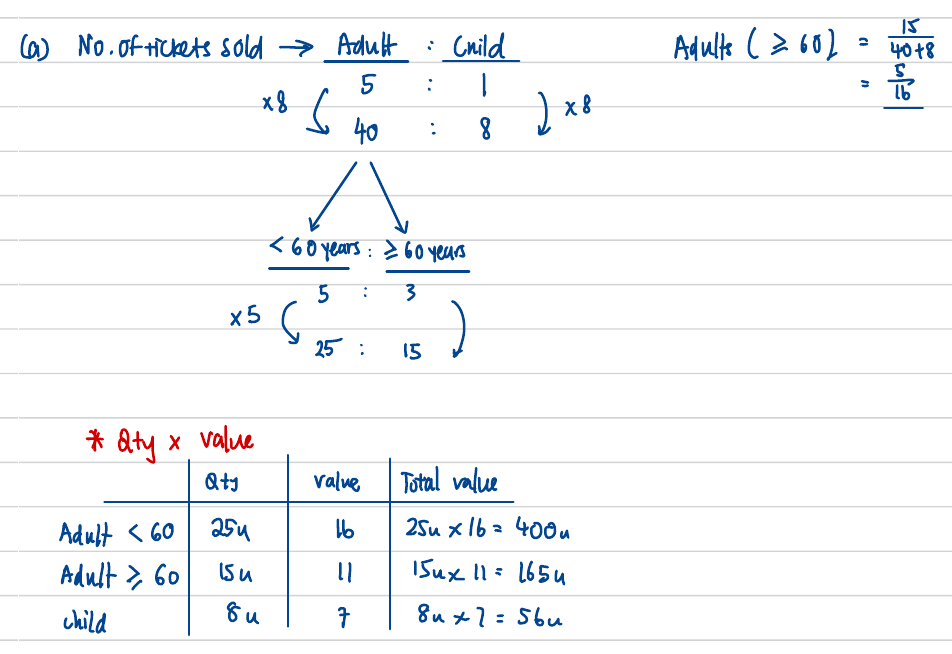 (a) No. of tickets sold → Adult : Child
5 : 1
×8 ×8
40 : 8
Adults ( ≥ 60] = 15/40+8
= 5/16
< 60 years : ≥ 60 years
5 : 3
×5
25 : 15
* Qty × value
Qty value Total value
Adult < 60 25u 16 25u × 16 = 400u
Adult ≥ 60 15u 11 15u × 11 = 165u
child 8u 7 8u × 7 = 56u